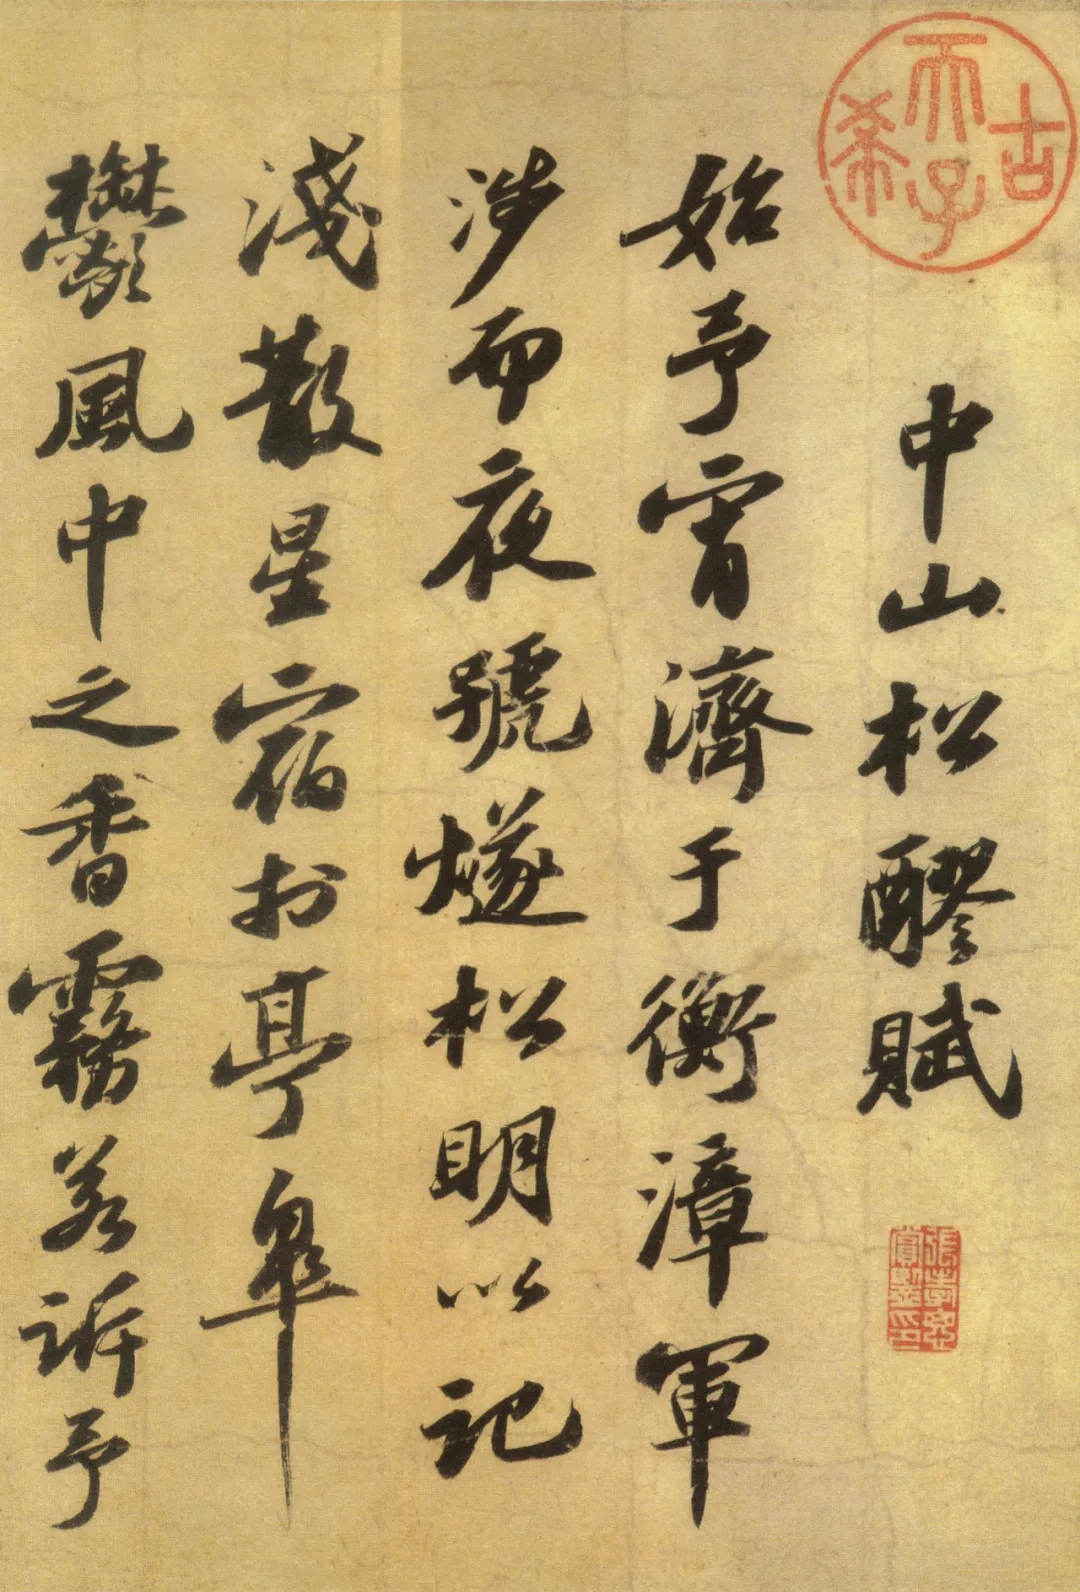 古希天子
中山松醪賦
張孝思
賞鑒印
始予宵濟于衡漳軍
涉而夜號燧松明以記
淺散星宿於亭皐
鬱風中之香霧若訴予